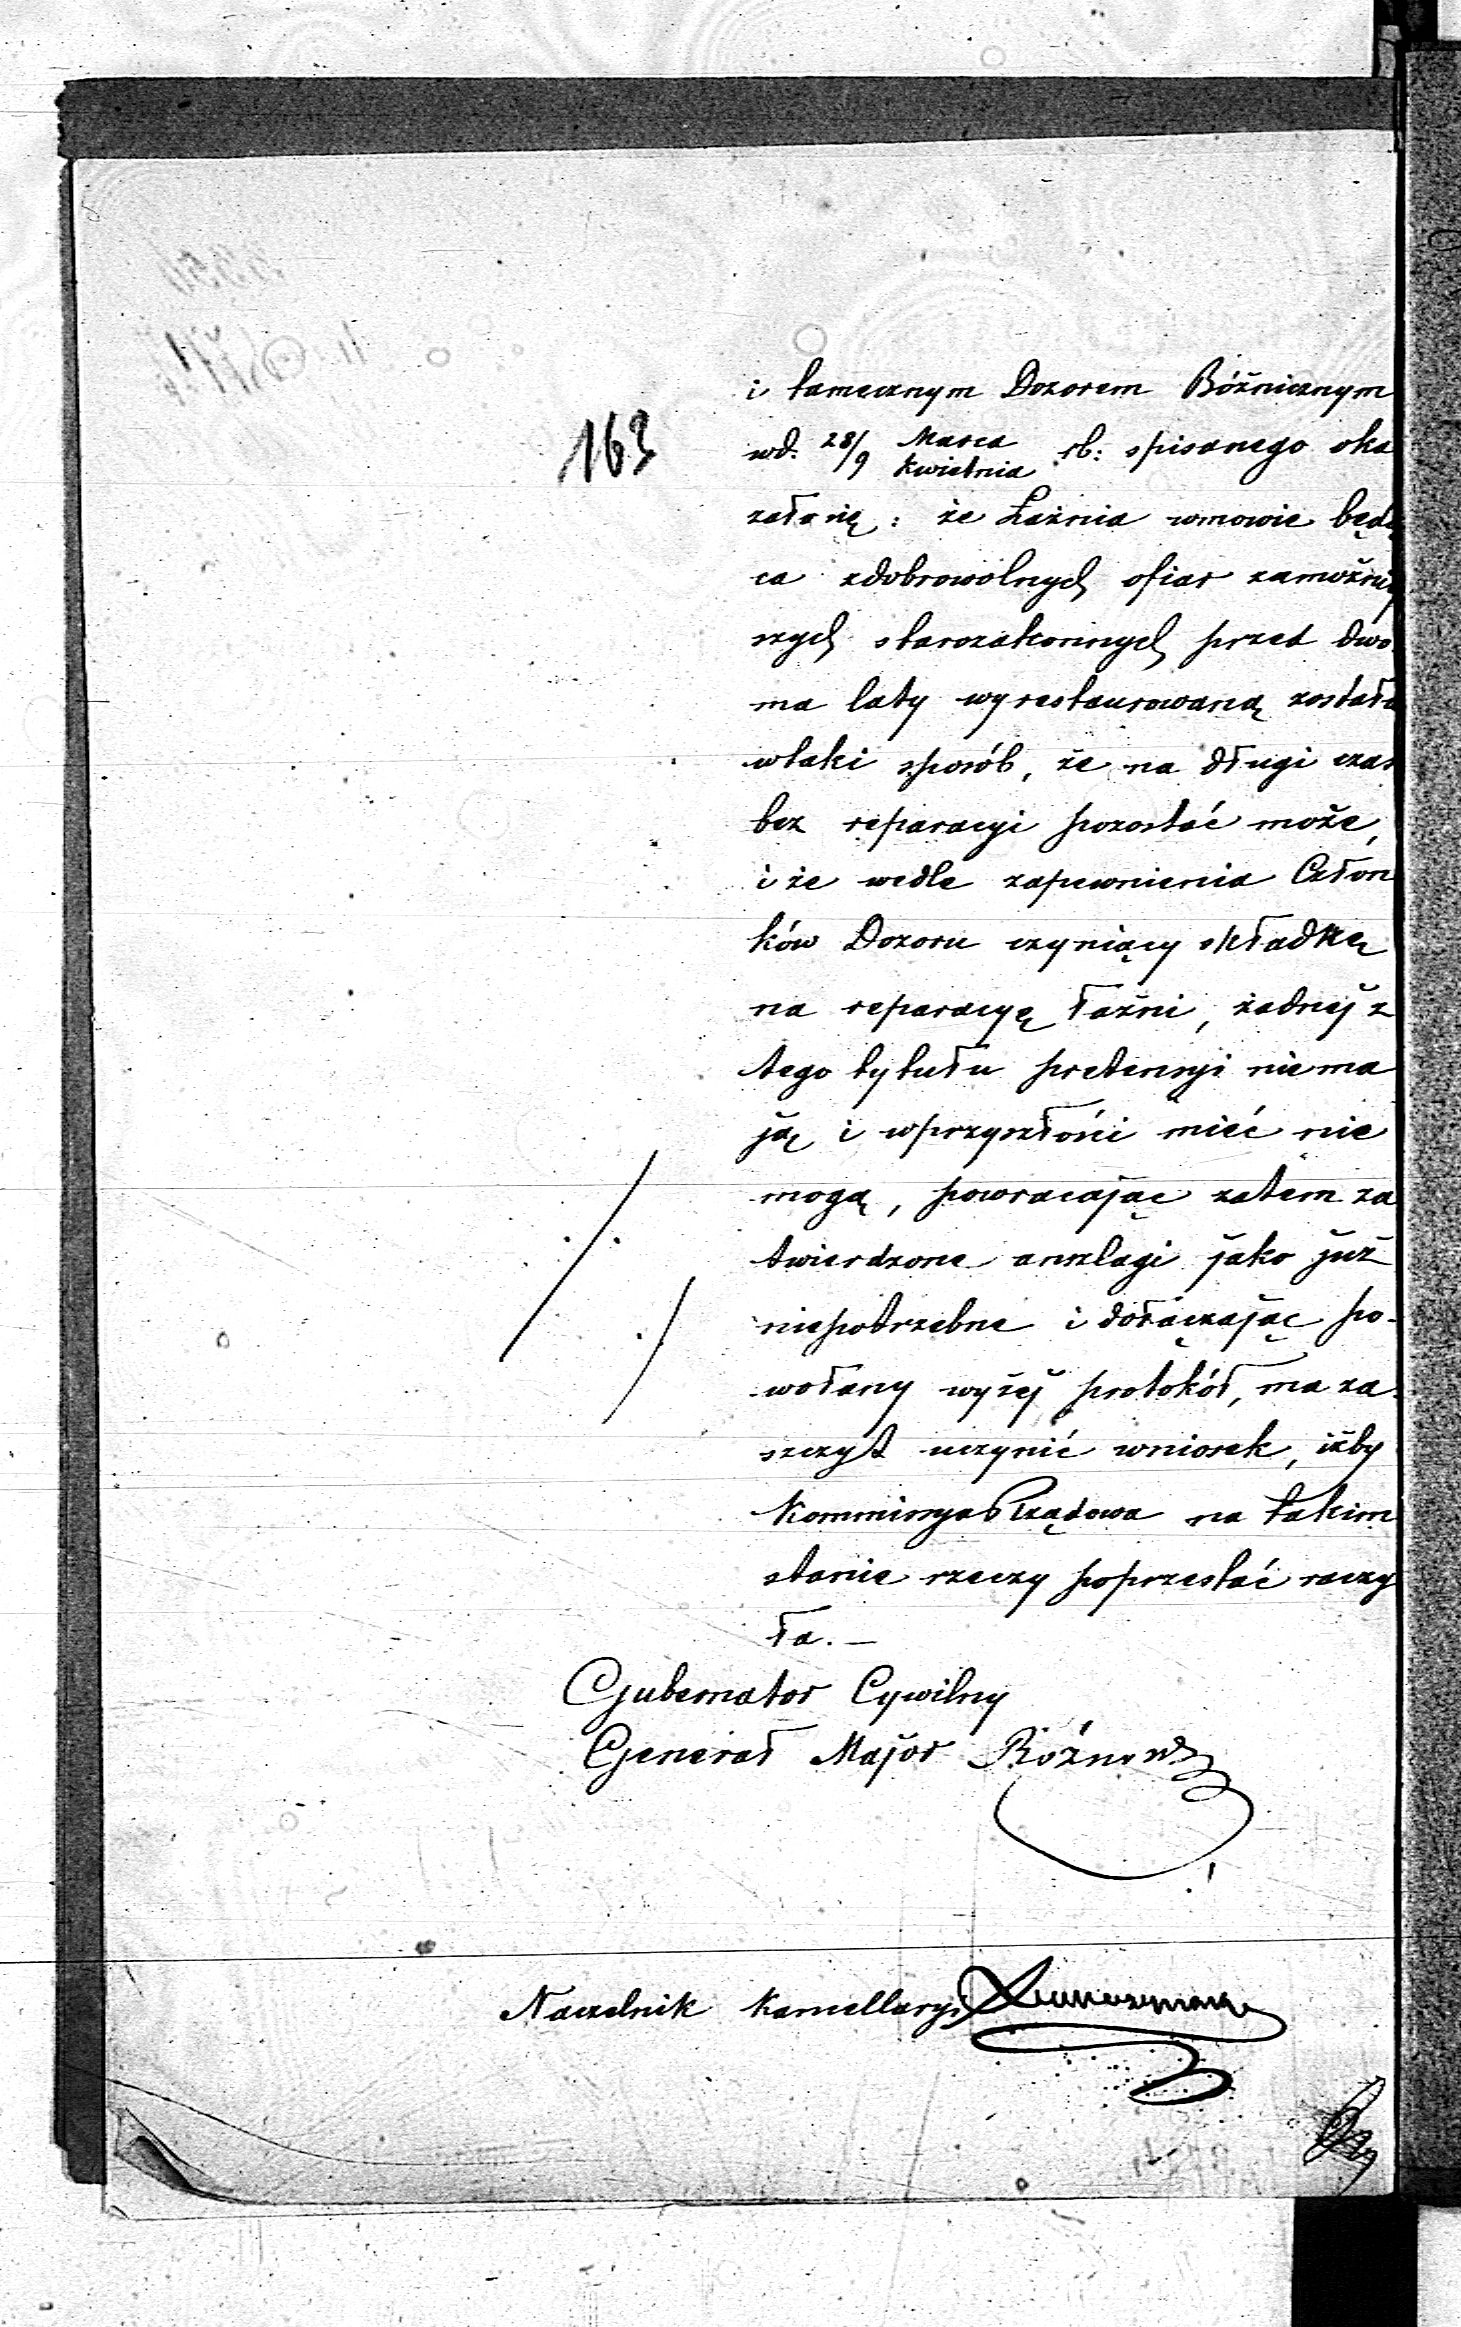 163
i tamecznym Dozorem Bóżnicznym
wd. 28/9 Marca Kwietnia rb: spisanego oka
zało się: że Łaźnia wmowie będą
ca zdobrowolnych ofiar zamożniej
szych starozakonnych przed dwo
ma laty wyrestaurowaną została
wtaki sposób, że na długi czas
bez reparacyi pozostać może,
i że wedle zapewnienia Człon
ków Dozoru czyniący składkę
na reparacyę łaźni, żadnej z
tego tytułu pretensyi nie ma
ją i wprzyszłości mieć nie
mogą, powracając zatem za
twierdzone anszlagi jako już
niepotrzebne i dołączając po-
wołany wyżej protokół, ma za-
szczyt uczynić wniosek, iżby
Kommissya Rządowa na takim
stanie rzeczy poprzestać raczy
ła. —
Gubernator Cywilny
Generał Major Różnow
Naczelnik Kancellaryi